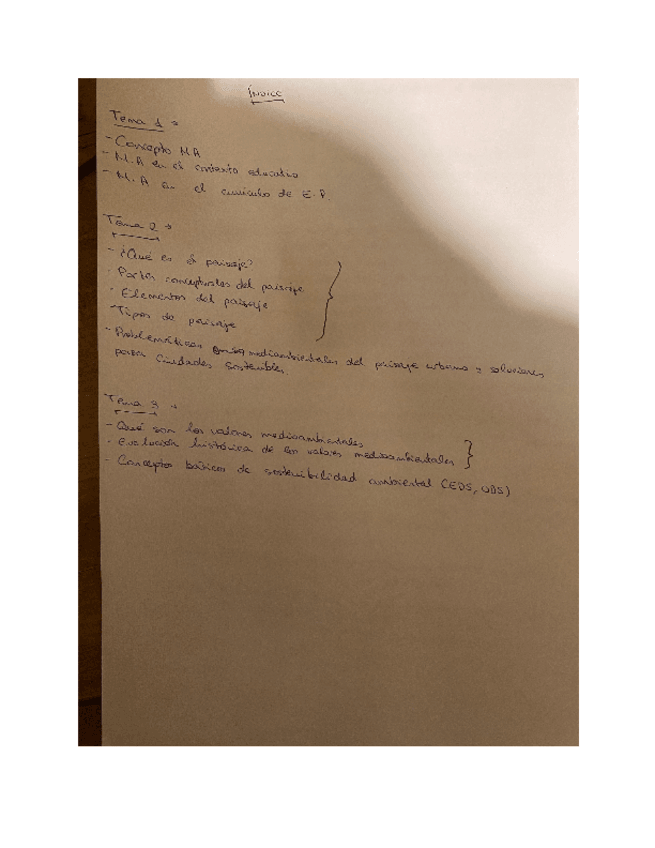 ÍNDICE
Tema 1 →
- Concepto MA
- M.A en el contexto educativo
- M.A en el currículo de E.P.
Tema 2 →
- ¿Qué es el paisaje?
- Partes conceptuales del paisaje
- Elementos del paisaje
- Tipos de paisaje
- Problemáticas medioambientales del paisaje urbano = soluciones
para Ciudades Sostenibles.
Tema 3 →
- Qué son los valores medioambientales
- Evolución histórica de los valores medioambientales
- Concepto básico de sostenibilidad ambiental (EDS, ODS)